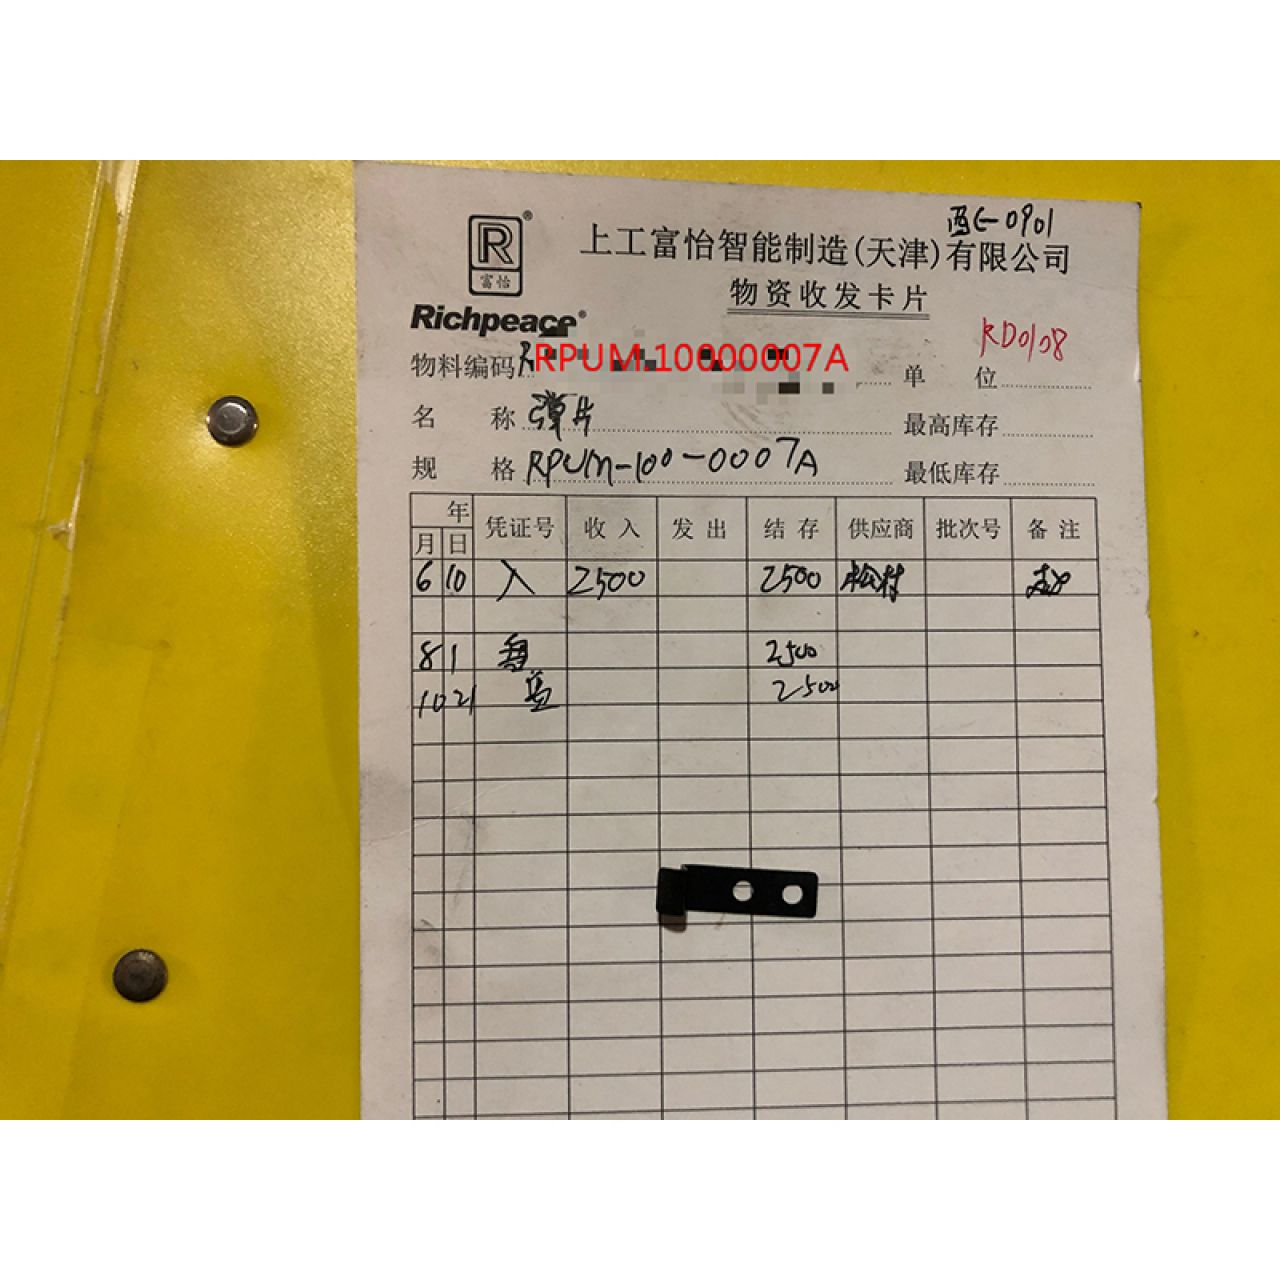 西E-0901
R®
富怡
上工富怡智能制造(天津)有限公司
物资收发卡片
Richpeace®
RD0108
物料编码 RPUM.10000007A 单 位
名 称 弹片 最高库存
规 格 RPUM-100-0007A 最低库存
年 凭证号 收入 发出 结存 供应商 批次号 备注
月 日
6 10 入 2500 2500 松村
8 1 盘 2500
10 21 盘 2500